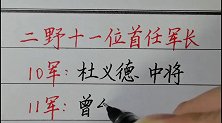 二野十一位首任军长
10军：杜义德 中将
11军：曾